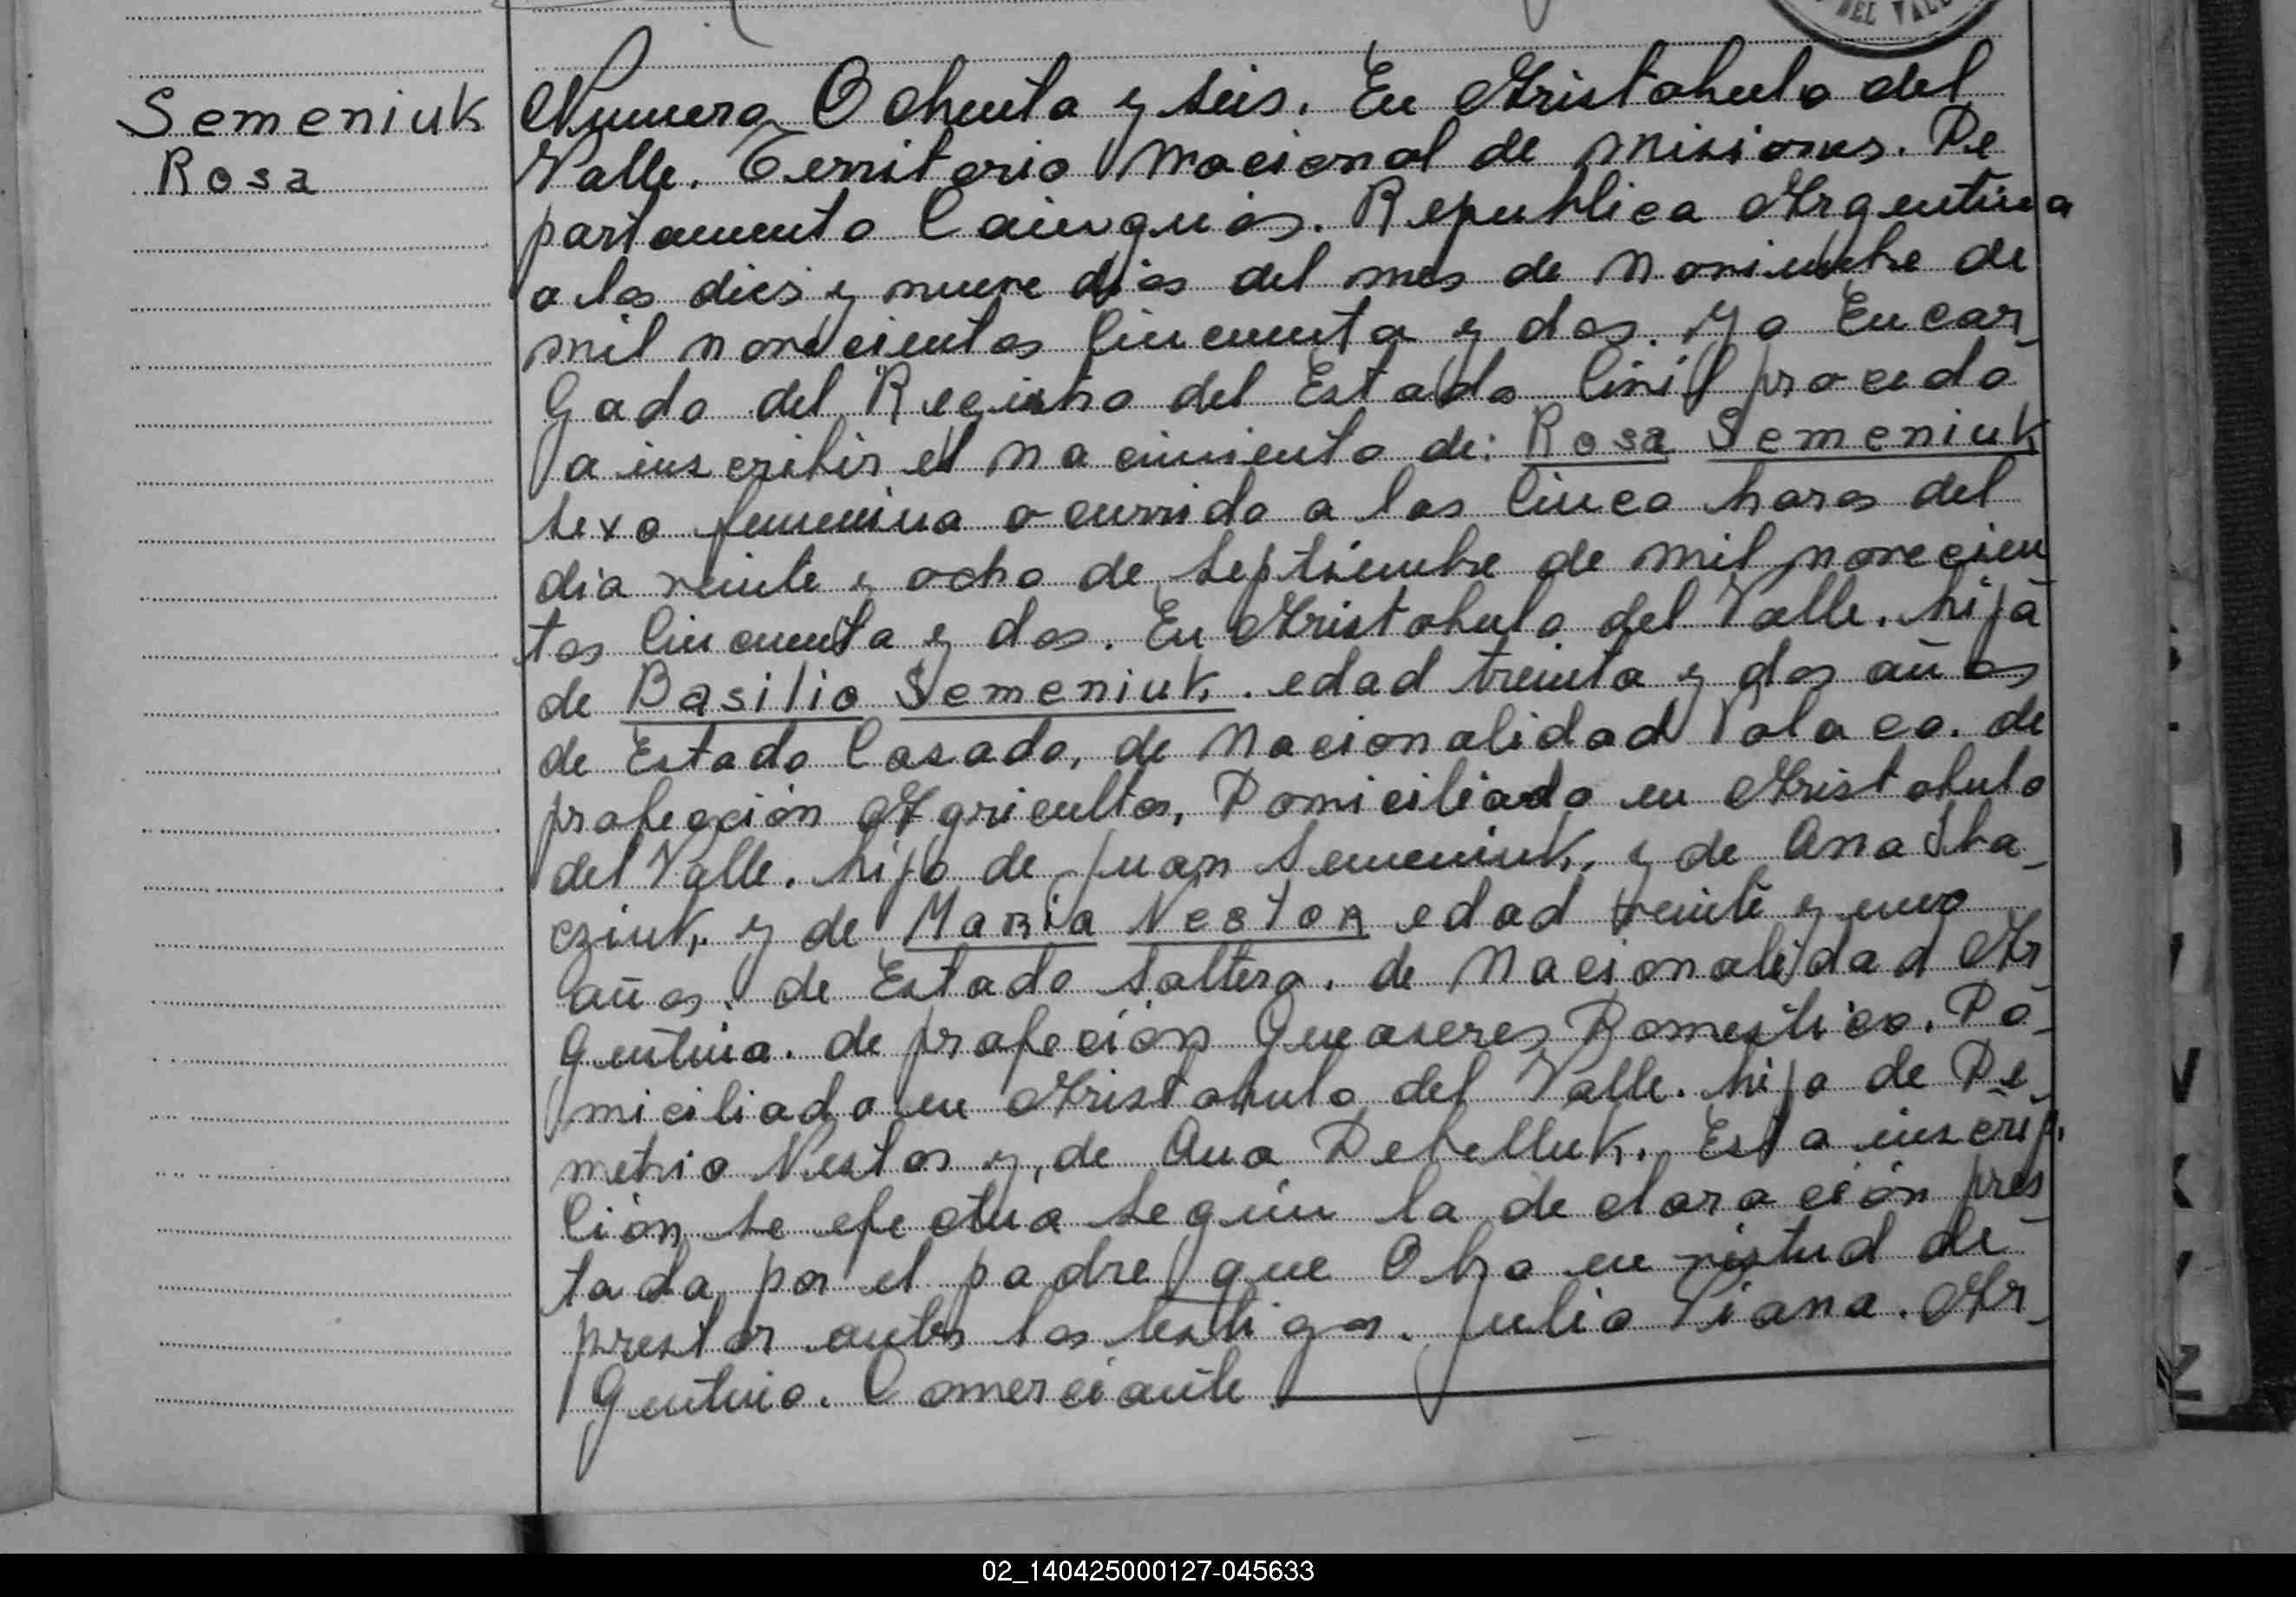 DEL VALL
Semeniuk
Rosa
Numero Ochenta y seis. En Aristobulo del
Valle. Territorio Nacional de Misiones. De
partamento Cainguás. Republica Argentina
a los dies y nueve dias del mes de Noviembre de
mil novecientos Cincuenta y dos. Yo Encar
gado del Registro del Estado Civil procedo
a inscribir el nacimiento de: Rosa Semeniuk
sexo femenina ocurrido a las Cinco horas del
dia veinte y ocho de septiembre de mil novecien
tos Cincuenta y dos. En Aristobulo del Valle. hija
de Basilio Semeniuk. edad treinta y dos años
de Estado Casado, de Nacionalidad Polaco. de
profección Agricultor, Domiciliado en Aristobulo
del Valle. hijo de Juan Semeniuk. y de Ana Tka_
cziuk. y de Maria Nestor edad veinte y uno
años. de Estado Soltera. de Nacionalidad Ar
gentina. de profeción Queaseres Domestico. Do_
miciliado en Aristobulo del Valle. hija de De_
metrio Nestor y, de Ana Debelluk. Esta inscrip.
Ción se efectua según la declaración pres
tada por el padre que Obra en virtud de
prestar antes los testigos. Julio Viana. Ar_
gentino. Comerciante
02_140425000127-045633